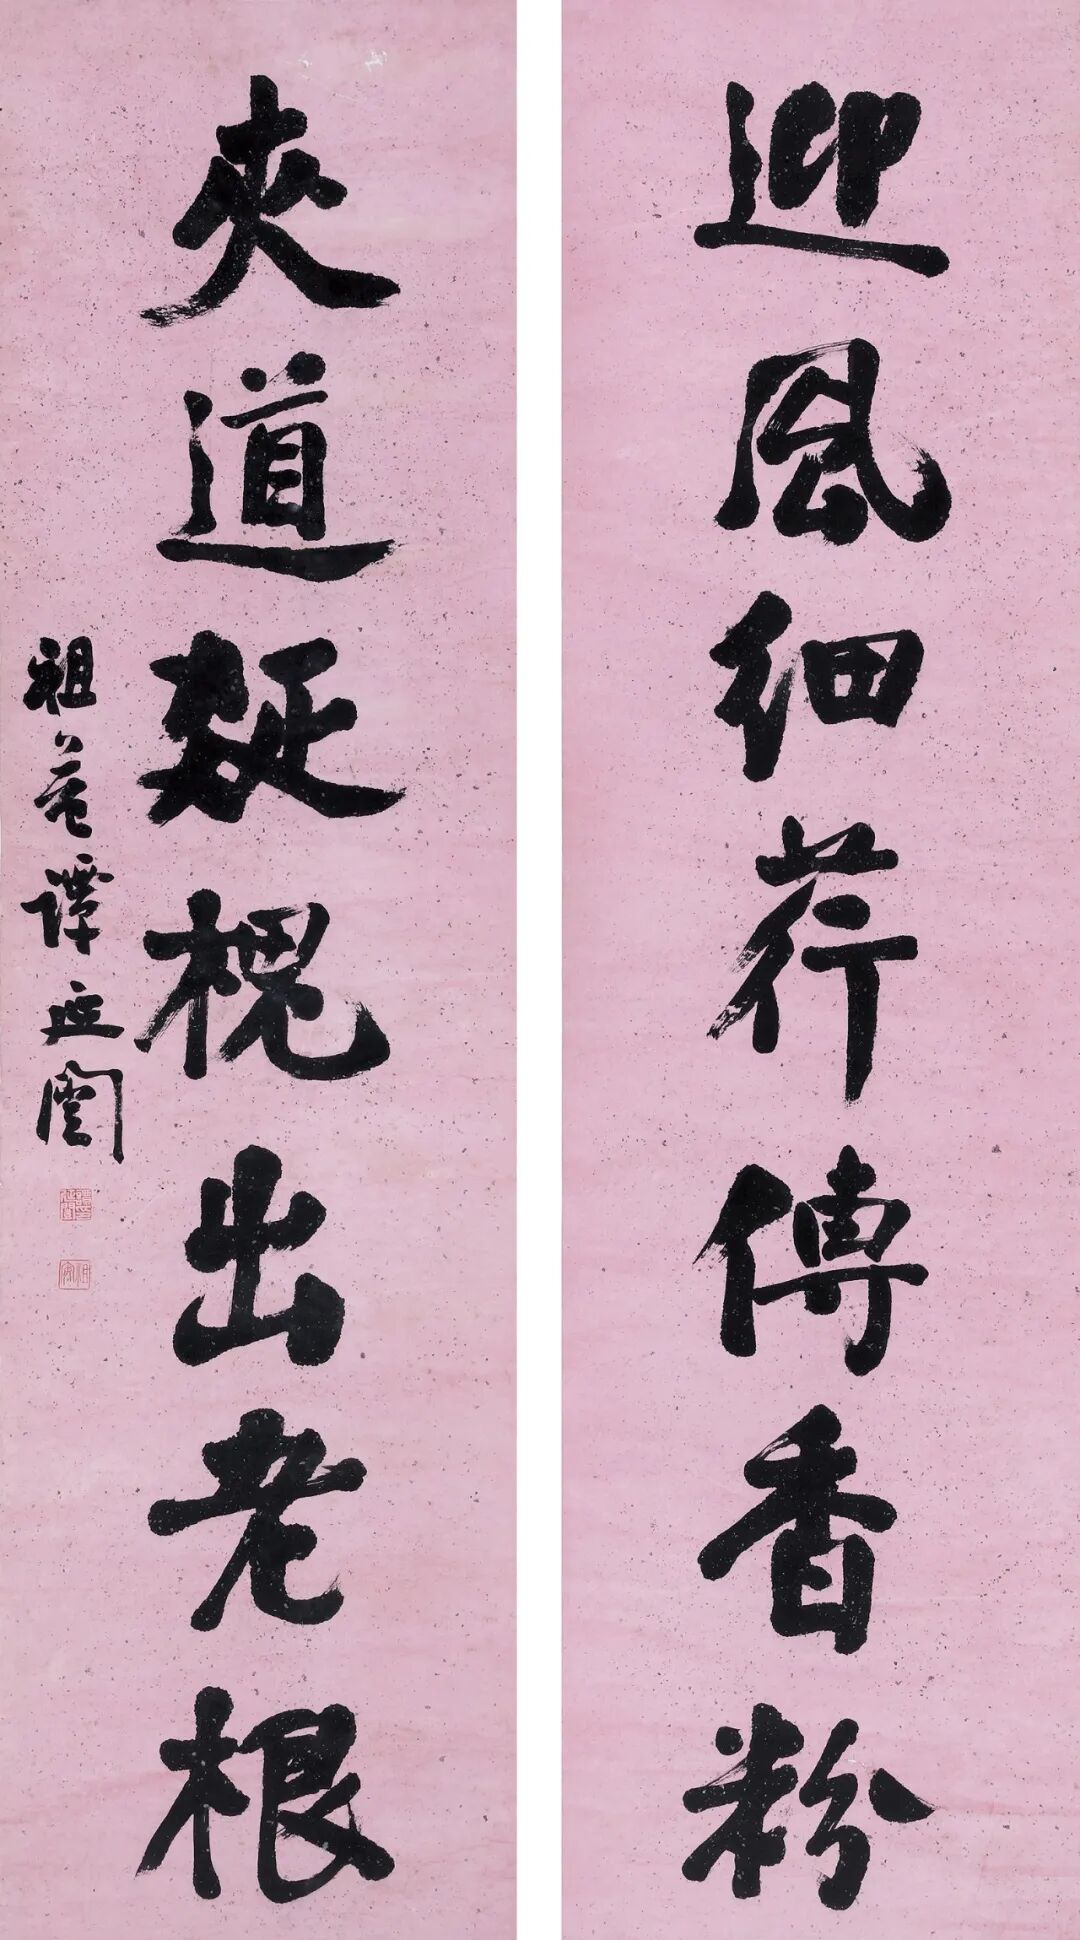 迎風細荇傳香粉
夾道疎槐出老根
祖菴譚延闓